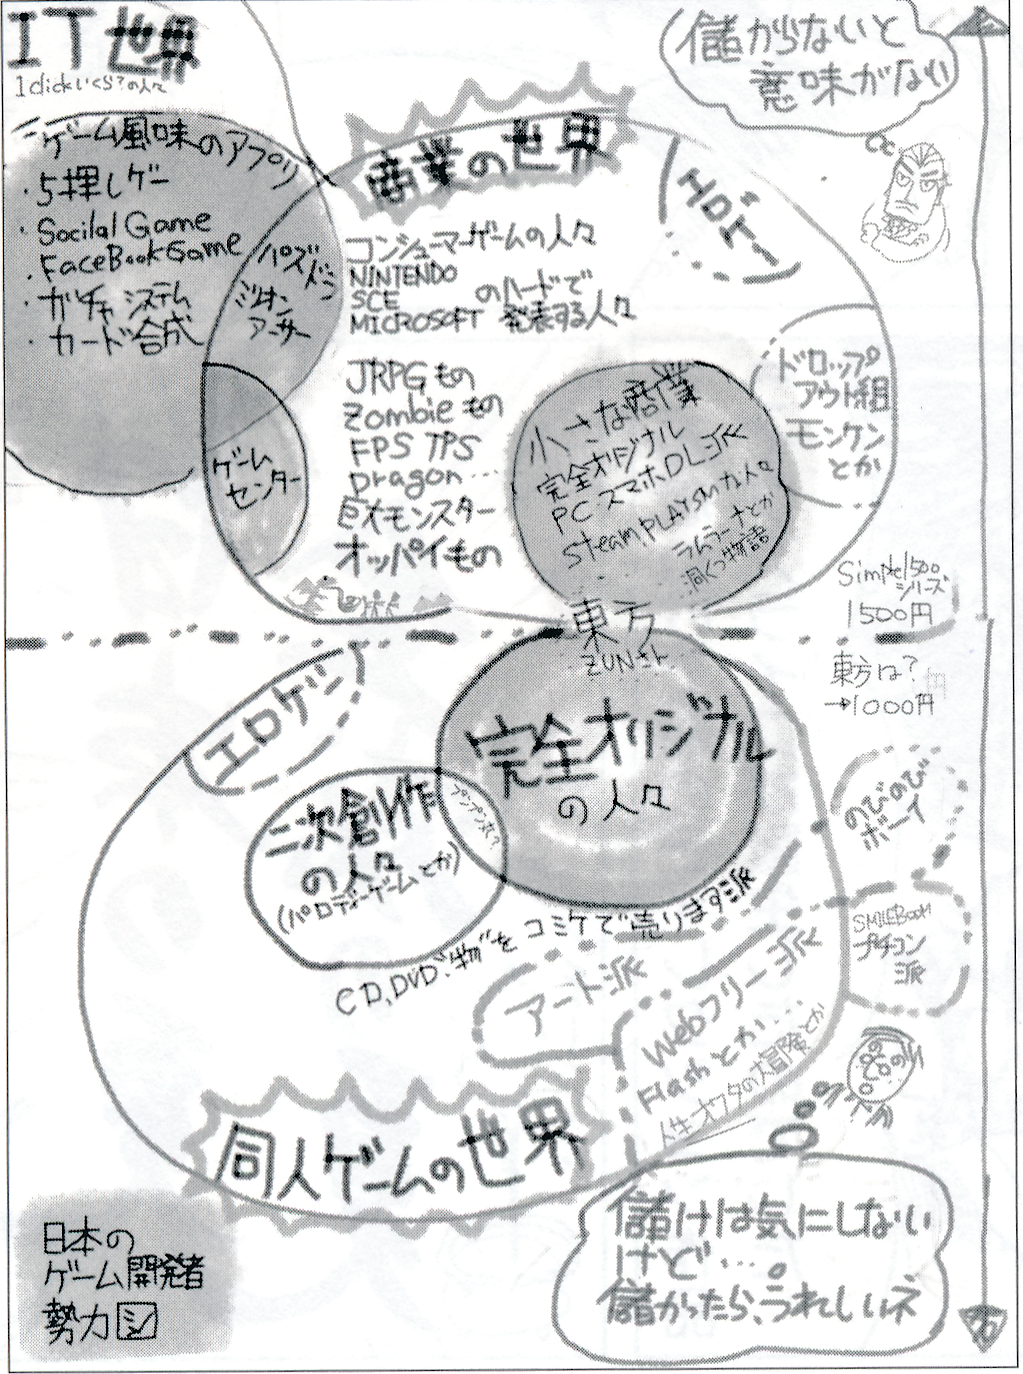 IT世界
1clickいくら?の人々
ゲーム風味のアプリ
・5押しゲー
・Socilal Game
・FaceBookGame
・ガチャシステム
・カード合成
パズドラ
ミリオン
アーサー
ゲーム
センター
商業の世界
コンシューマーゲームの人々
NINTENDO
SCE
MICROSOFT
のハードで
発表する人々
JRPGもの
Zombieもの
FPS TPS
Dragon…
巨大モンスター
オッパイもの
小さな商業
完全オリジナル
PC・スマホDL派
Steam PLAYSMな人々
ラムラーナとか
洞くつ物語
ドロップ
アウト組
モンケン
とか
儲からないと
意味がない
Simple1500
シリーズ
1500円
東方は?
→1000円
東方
ZUNさん
完全オリジナル
の人々
エロゲー
二次創作
の人々
(パロディーゲームとか)
CD,DVD"物"をコミケで売ります派
アート派
Webフリー派
Flashとか…
人生オワタの大冒険とか
のびのび
ボーイ
SMILEBOOM
プチコン
派
同人ゲームの世界
儲けは気にしない
けど…。
儲かったら、うれしいネ
日本の
ゲーム開発者
勢力図